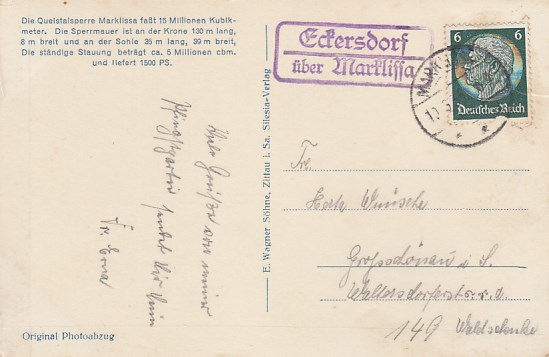 Die Queistalsperre Marklissa faßt 15 Millionen Kubik-
meter. Die Sperrmauer ist an der Krone 130 m lang,
8 m breit und an der Sohle 35 m lang, 39 m breit,
Die ständige Stauung beträgt ca. 5 Millionen cbm.
und liefert 1500 PS.
Eckersdorf
über Marklissa
6 6
Deutsches Reich
E. Wagner Söhne, Zittau i. Sa. Silesia-Verlag
Viele Grüße von meiner
sendet Dir Dein
Fr. Erna
Fr.
Herta Wünsche
Großschönau i. S.
149 Waldschenke
Original Photoabzug